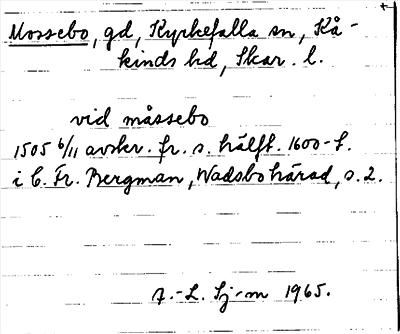 Mossebo, gd, Kyrkefalla sn, Kå-
kinds hd, Skar. l.
vid måssebo
1505 6/11 avskr. fr. s. hälft. 1600-t.
i C. Fr. Bergman, Wadsbo härad, s. 2.
A.-L. Sj-m 1965.